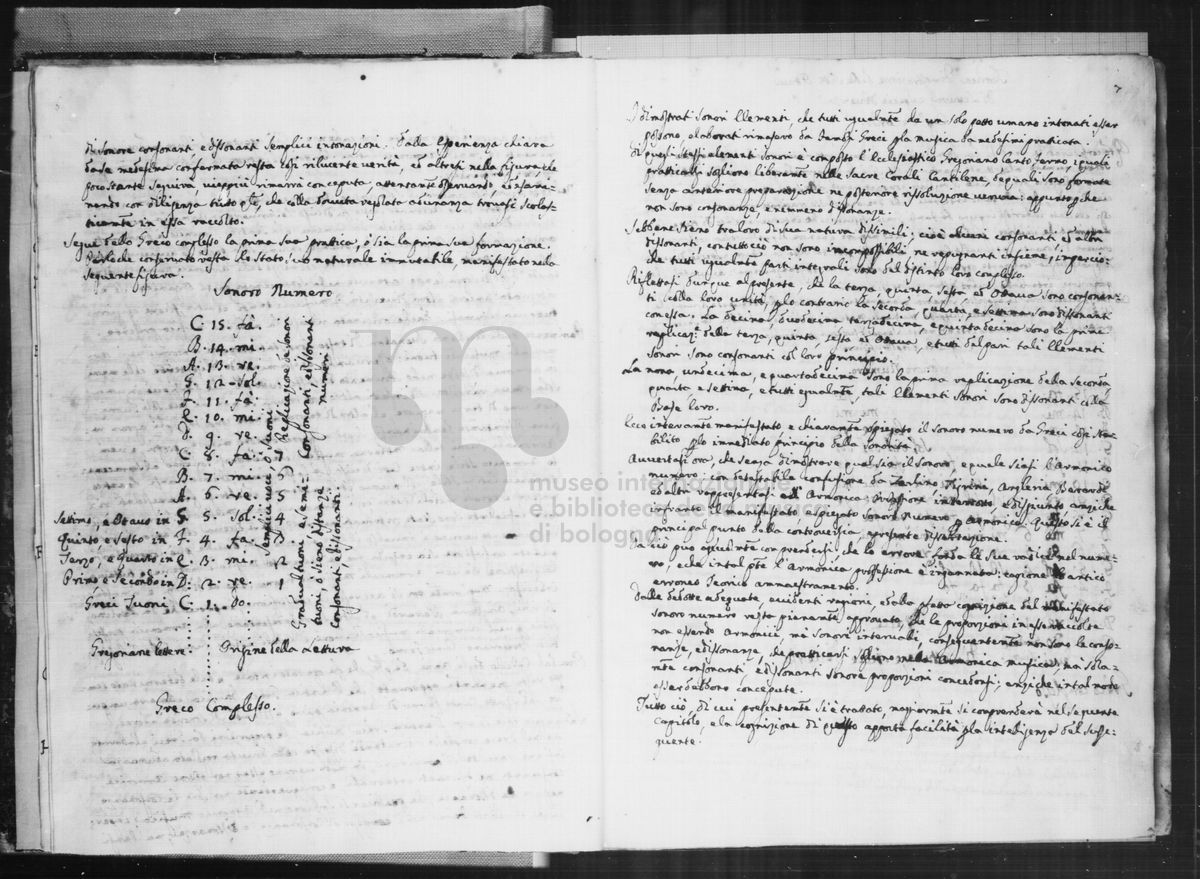 di Sonore consonanti e dissonanti semplici intonazioni. Dalla esperienza chiara
base medesima confermata resta così rilucente verità, ed altresì nella figura, che
poco stante seguirà vieppiù rimarrà conceputa, attentamte osservando ed esami-
nando con diligenza tutto che, che colla dovuta regolata adunanza trovasi scolas-
ticamte in essa raccolto.
Segue dello Greco complesso la prima sua pratica, o sia la prima sua formazione.
confermato resta lo stato suo naturale immutabile, manifestato nella
seguente figura.
Sonoro Numero
C. 15. fa.
B. 14. mi
A. 13. re.
G. 12. Sol.
F. 11. fa.
E. 10. mi.
D. 9. re.
C. 8. fa.
B. 7. mi.
A. 6. re. 5
Settimo, e Ottavo in G. 5. Sol. 4
Quinto e Sesto in F. 4. fa. 3
Terzo, e Quarto in E. 3. mi. 2
Primo e Secondo in D. 2. re. 1
Greci Tuoni. C. 1. Do.
Semplici voci, o suoni
Replicazione de sonori
Consonanti, e dissonanti
numeri
Gregoriane lettere Origine della Lettura
Greco Complesso.
7
I dimostrati Sonori Elementi, che tutti ugualmte da un solo petto umano intonati esser
possono, elaborati rimasero da Greci pla musica da medesimi praticata.
Di questi stessi elementi sonori è composto l'Ecclesiastico Gregoriano Canto fermo, i quali
praticati sogliono liberamte nelle Sacre Corali Cantilene, de quali sono formate
senza anteriore preparazione ne posteriore rissoluzione veruna: appunto pche
non sono consonanze, e nemmeno dissonanze.
Sebbene sieno tra loro di sua natura dissimili; cioè alcuni consonanti ed altri
dissonanti, contuttociò non sono incompossibili, ne repugnanti insieme; impercio-
che tutti ugualmte parti integrali sono del distinto loro complesso.
Riflettasi dunque al presente, che la terza, quinta, sesta, ed Ottava sono consonan-
ti colla loro unità, plo contrario la Seconda, quarta, e settima sono dissonanti
con essa. La decima, duodecima terzadecima, e quintadecima sono la prima
replicaze della terza, quinta, sesta ed Ottava, e tutti del pari tali Elementi
Sonori sono consonanti col loro principio.
La nona undecima, e quartadecima sono la prima replicazione della seconda
quarta e settima, e tutti equalmte tali Elementi Sonori sono dissonanti colla
Base loro.
Ecco interamte manifestato e chiaramte spiegato il sonoro numero da Greci così sta-
bilito plo immediato principio della sonorità.
Avvertasi ora, che senza dimostrare qual sia il Sonoro, e quale siasi l'Armonico
numero: con detestabile confusione da Zarlino Tigrini, Angleria Berardi
ed altri rappresentasi all'Armonica professione interrotto, e disgiunto anziche
infranto il manifestato e spiegato sonoro Numero p armonico. Questo si è il
principal punto della controversia, e presente dissertazione.
Da ciò può agevolmte comprendersi che lo errore fonda le sue radici nel nume-
ro, e che in tal pte l'Armonica professione è ingannata; cagione l'antico
erroneo Teorico ammaestramento.
Dalle dedotte adeguate, evidenti ragioni, e dalla pfetta cognizione del manifestato
Sonoro numero resta pienamte approvato, che le proporzioni in esso raccolte
non essendo Armonici, mà Sonori intervali, conseguentemte non sono le conso-
nanze, e dissonanze, che pratticarsi sogliono nella Armonica musica; ma sola-
mte consonanti, e dissonanti sonore proporzioni concedonsi; anziche in tal modo
esser debbono concepute.
Tutto ciò, di cui presentemte si è trattato, magiormte si comprenderà nel seguente
Capitolo, e la cognizione di questo apporta facilità pla inteligenza del susse-
guente.
museo internazionale
e biblioteca della musica
di bologna